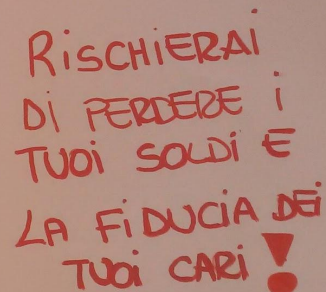 RiSCHiERAi
Di PERDERE i
TUOi SOLDi E
LA FiDUCiA DEi
TUOi CARi!